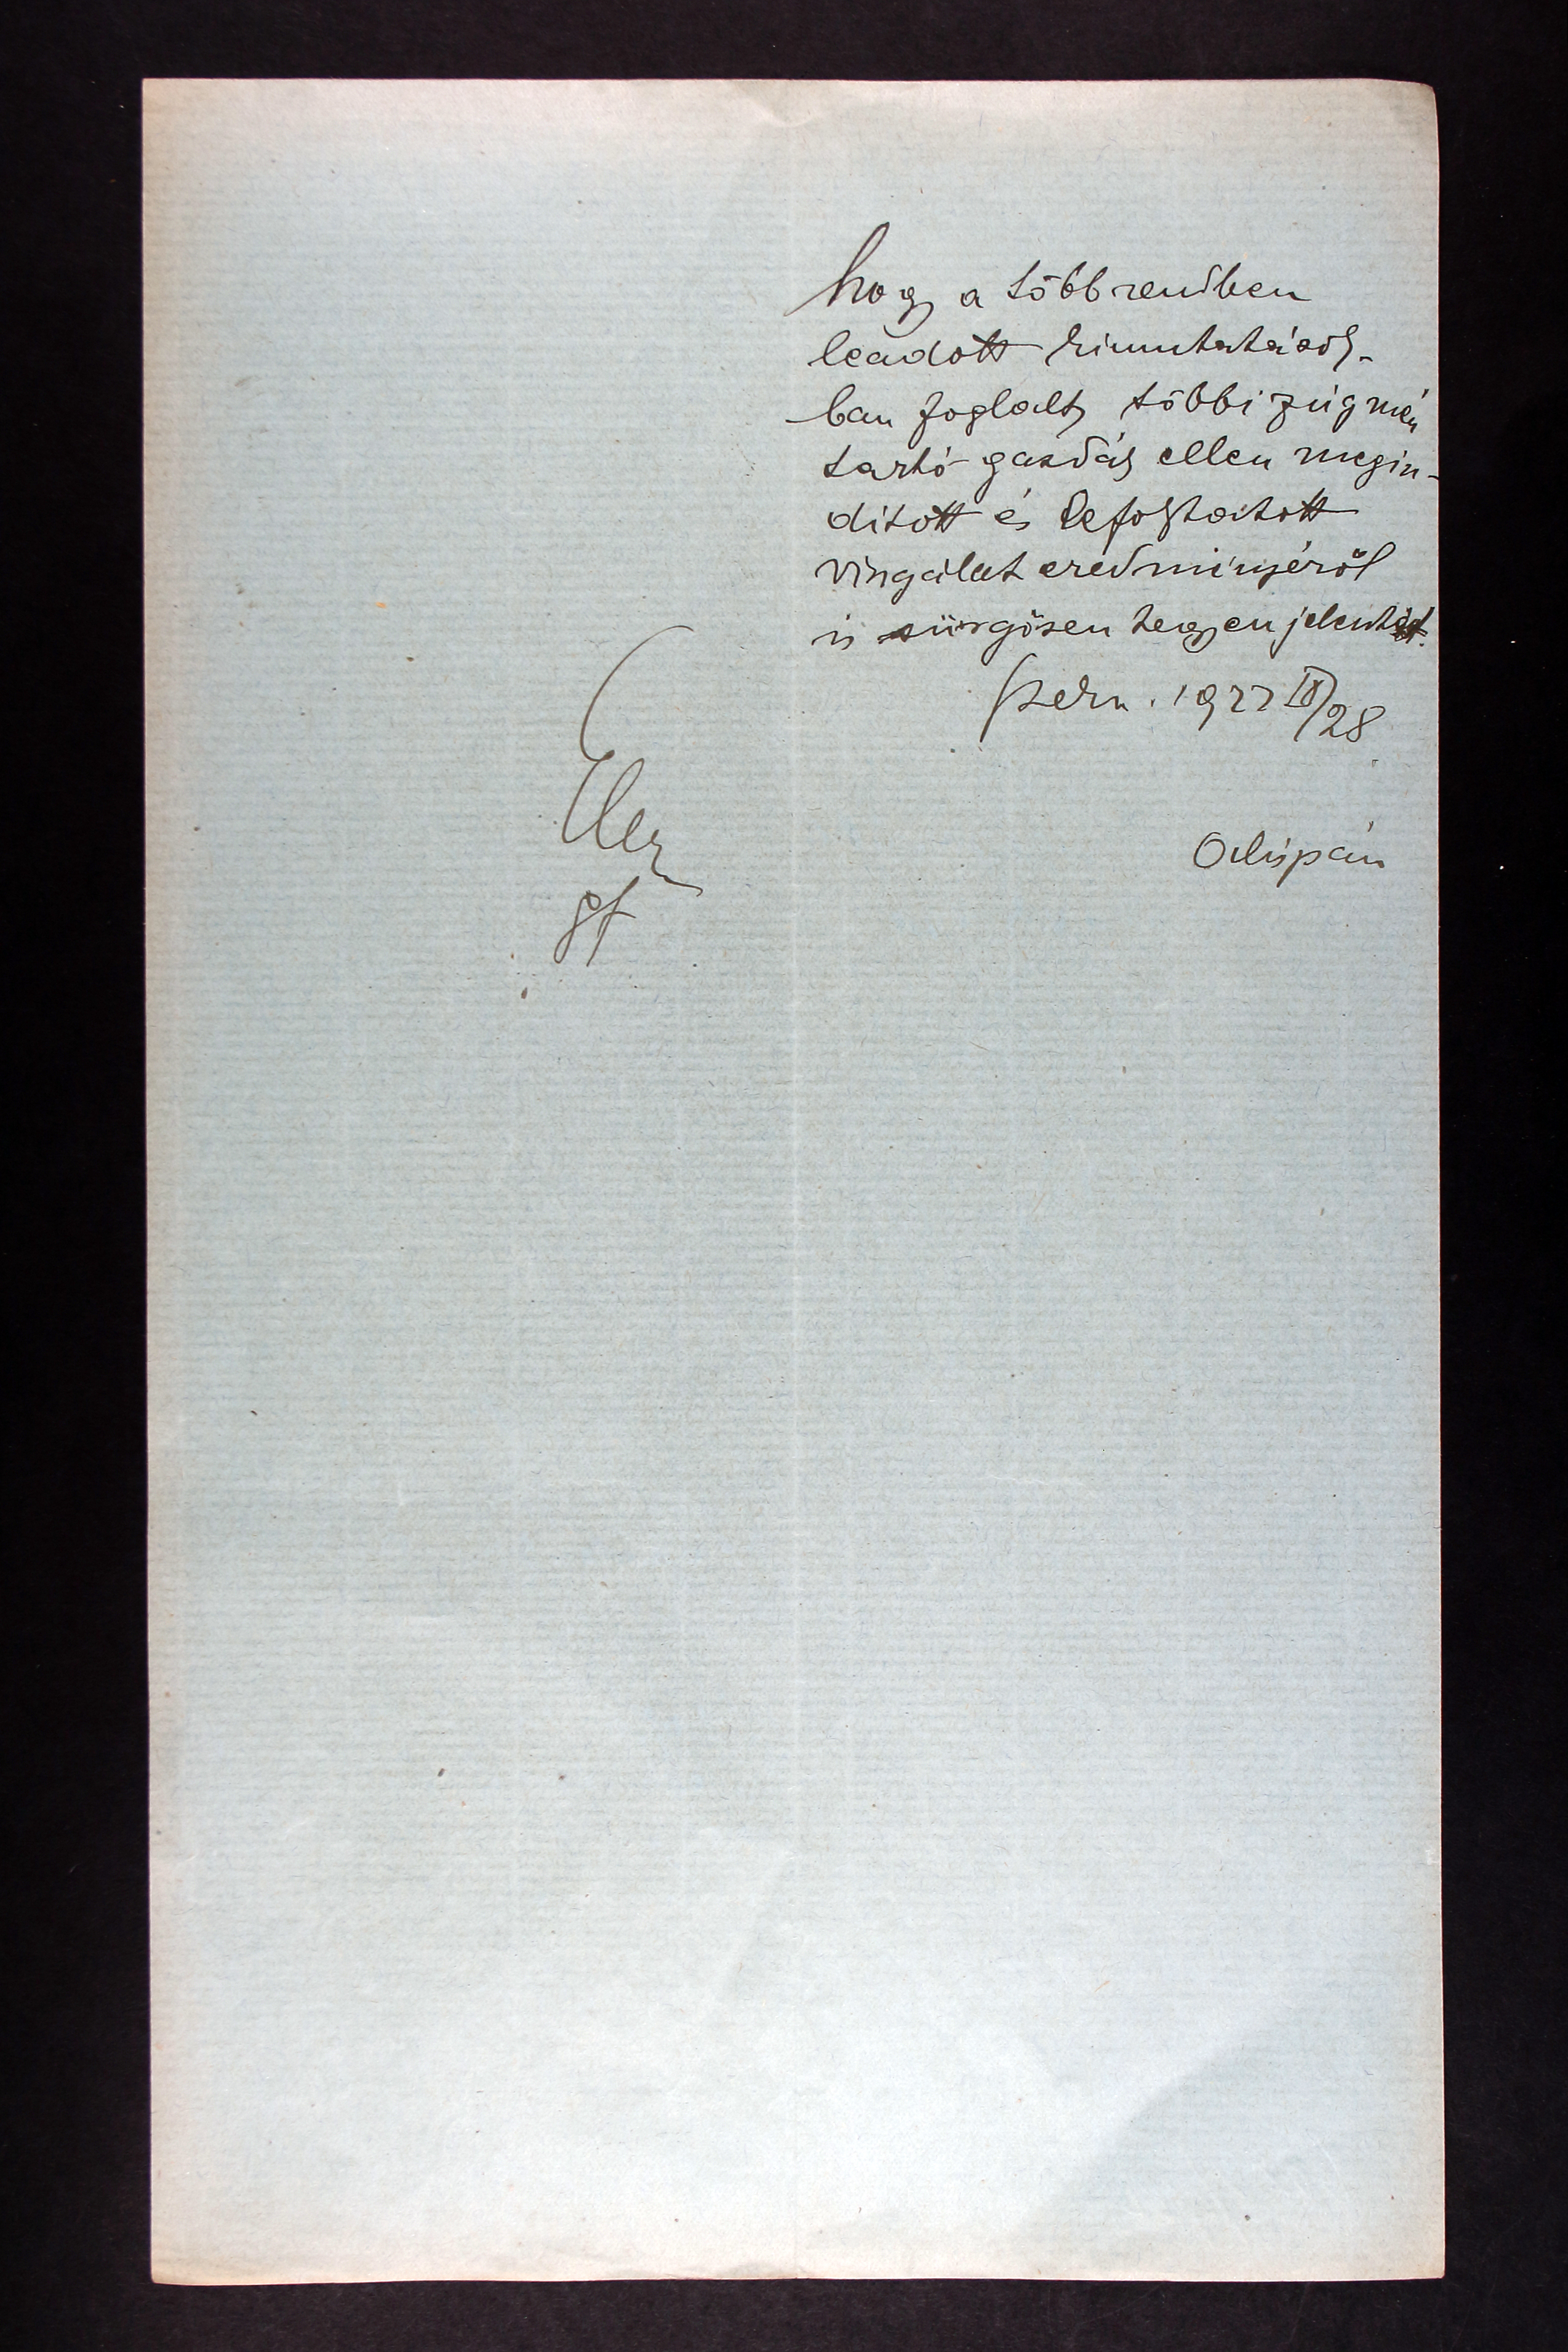 hogy a többrendben
leadott kimutatások-
ban foglalt többi zúgmén
tartó gazdák ellen megin-
dított és lefolytatott
vizsgálat eredményéről
is sürgősen tegyen jelentést.
1922 28
Alispán